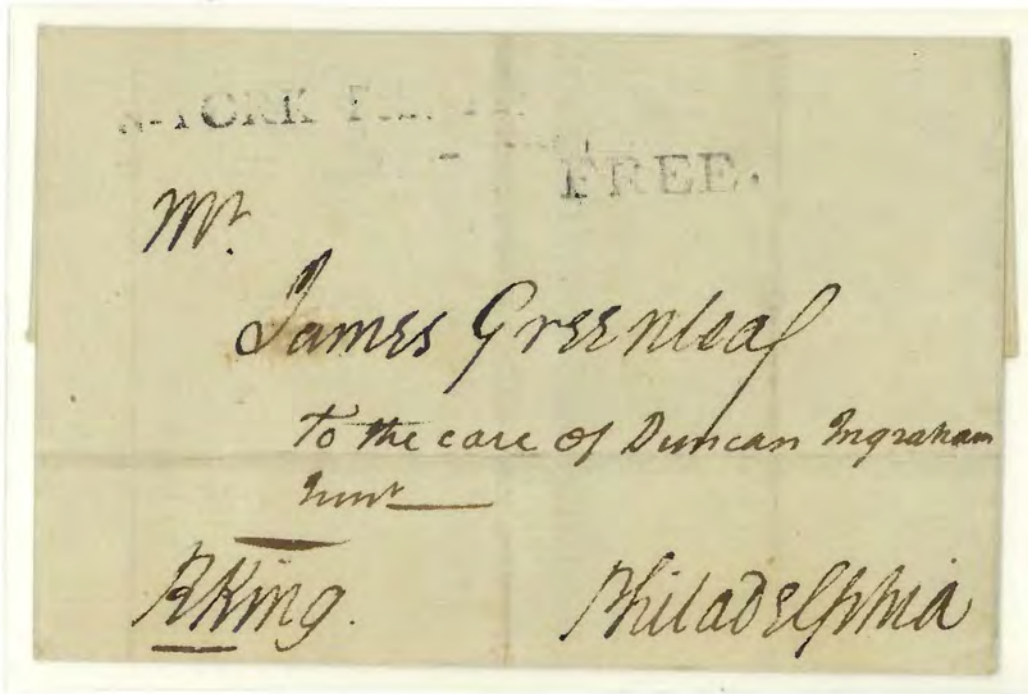 N-YORK
FREE.
Mr.
James Greenleaf
to the care of Duncan Ingraham
Junr
RKing.
Philadelphia